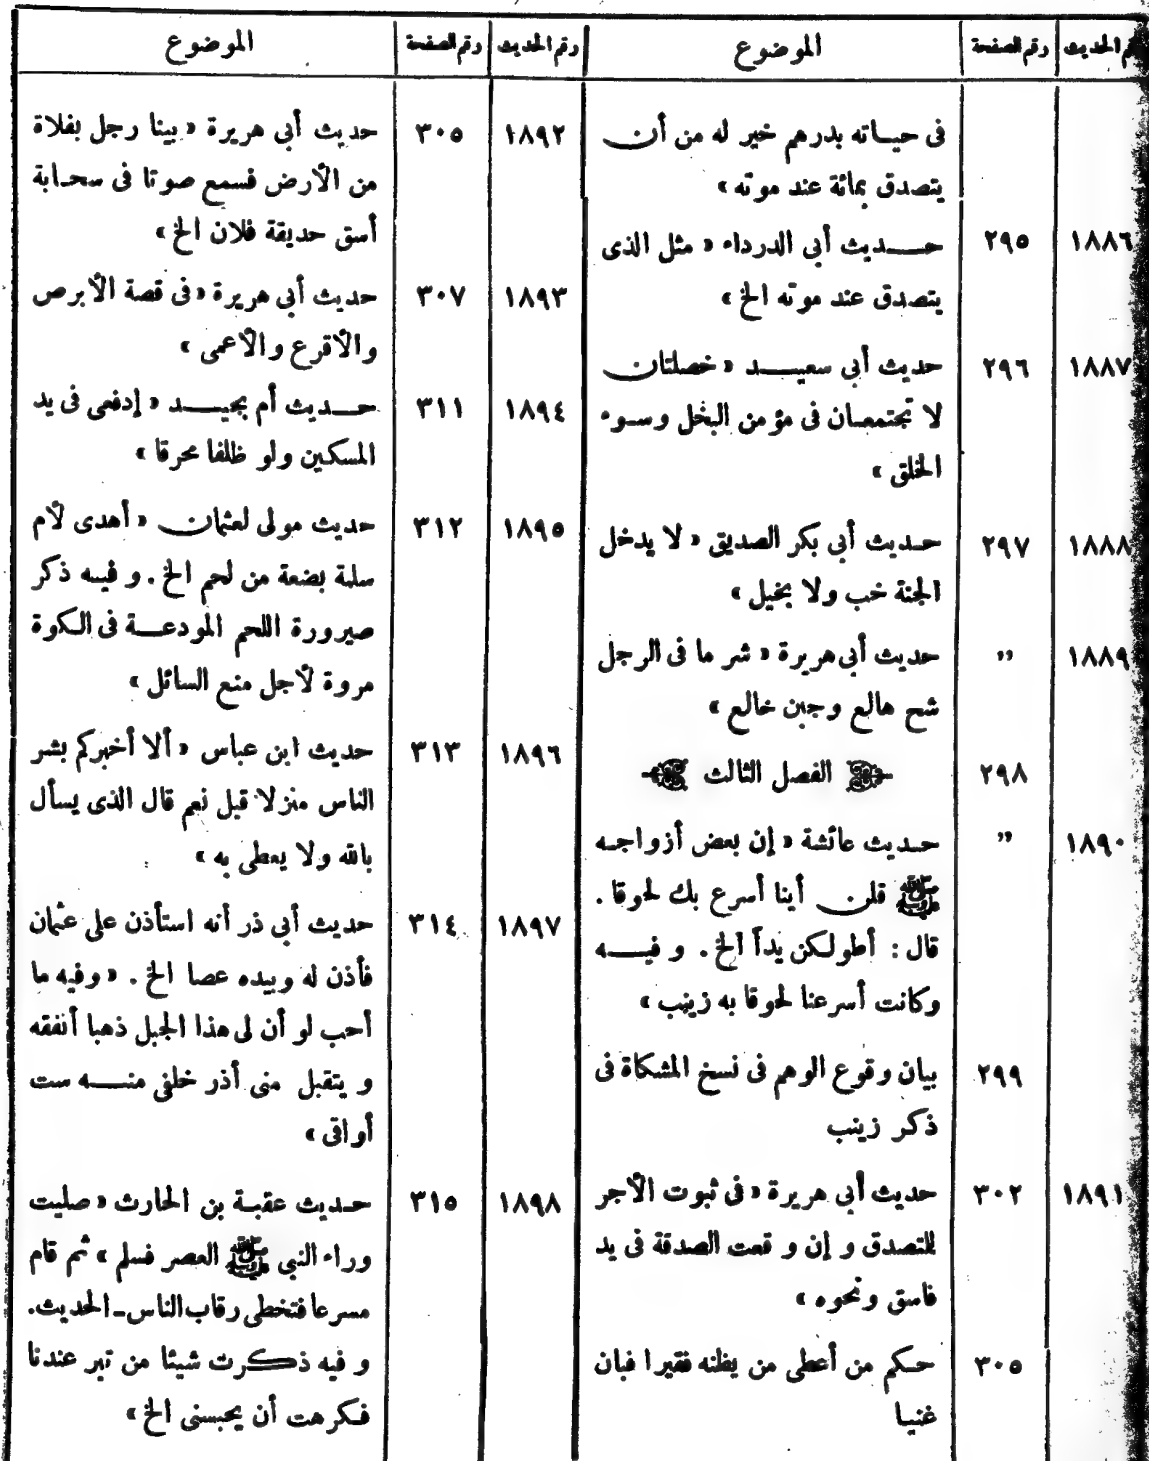 رقم الحديث رقم الصفحة الموضوع
فى حياته بدرهم خير له من أن
يتصدق بمائة عند موته »
١٨٨٦ ٢٩٥ حديث أبى الدرداء « مثل الذى
يتصدق عند موته الخ »
١٨٨٧ ٢٩٦ حديث أبى سعيد « خصلتان
لا تجتمعان فى مؤمن البخل وسوء
الخلق »
١٨٨٨ ٢٩٧ حديث أبى بكر الصديق « لا يدخل
الجنة خب ولا بخيل »
١٨٨٩ ,, حديث أبى هريرة « شر ما فى الرجل
شح هالع وجبن خالع »
٢٩٨ الفصل الثالث
١٨٩٠ ,, حديث عائشة « إن بعض أزواجه
ﷺ قلن أينا أسرع بك لحوقا .
قال : أطولكن يداً الخ . و فيه
وكانت أسرعنا لحوقا به زينب »
٢٩٩ بيان وقوع الوهم فى نسخ المشكاة فى
ذكر زينب
١٨٩١ ٣٠٢ حديث أبى هريرة « فى ثبوت الأجر
للتصدق و إن و قعت الصدقة فى يد
فاسق ونحوه »
٣٠٥ حكم من أعطى من يظنه فقيرا فبان
غنيا
رقم الحديث رقم الصفحة الموضوع
١٨٩٢ ٣٠٥ حديث أبى هريرة « بينا رجل بفلاة
من الأرض فسمع صوتا فى سحابة
أسق حديقة فلان الخ »
١٨٩٣ ٣٠٧ حديث أبى هريرة « فى قصة الأبرص
والأقرع والأعمى »
١٨٩٤ ٣١١ حديث أم بجيد « إدفعى فى يد
المسكين ولو ظلفا محرقا »
١٨٩٥ ٣١٢ حديث مولى لعثمان « أهدى لأم
سلمة بضعة من لحم الخ . و فيه ذكر
صيرورة اللحم المودعة فى الكوة
مروة لأجل منع السائل »
١٨٩٦ ٣١٣ حديث ابن عباس « ألا أخبركم بشر
الناس منزلا قيل نعم قال الذى يسأل
بالله ولا يعطى به »
١٨٩٧ ٣١٤ حديث أبى ذر أنه استأذن على عثمان
فأذن له وبيده عصا الخ . « وفيه ما
أحب لو أن لى هذا الجبل ذهبا أنفقه
و يتقبل منى أذر خلفى منه ست
أواقى »
١٨٩٨ ٣١٥ حديث عقبة بن الحارث « صليت
وراء النبى ﷺ العصر فسلم » ثم قام
مسرعا فتخطى رقاب الناس ـ الحديث.
و فيه ذكرت شيئا من تبر عندنا
فكرهت أن يحبسنى الخ »